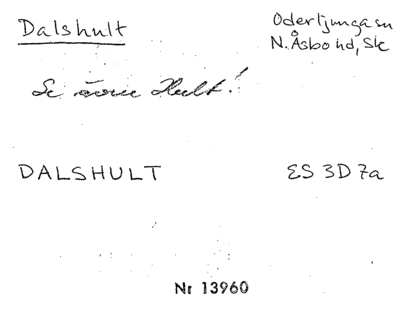 Dalshult
Oderljunga sn
N. Åsbo hd, Sk
Se även Hult!
DALSHULT
ES 3D7a
Nr 13960